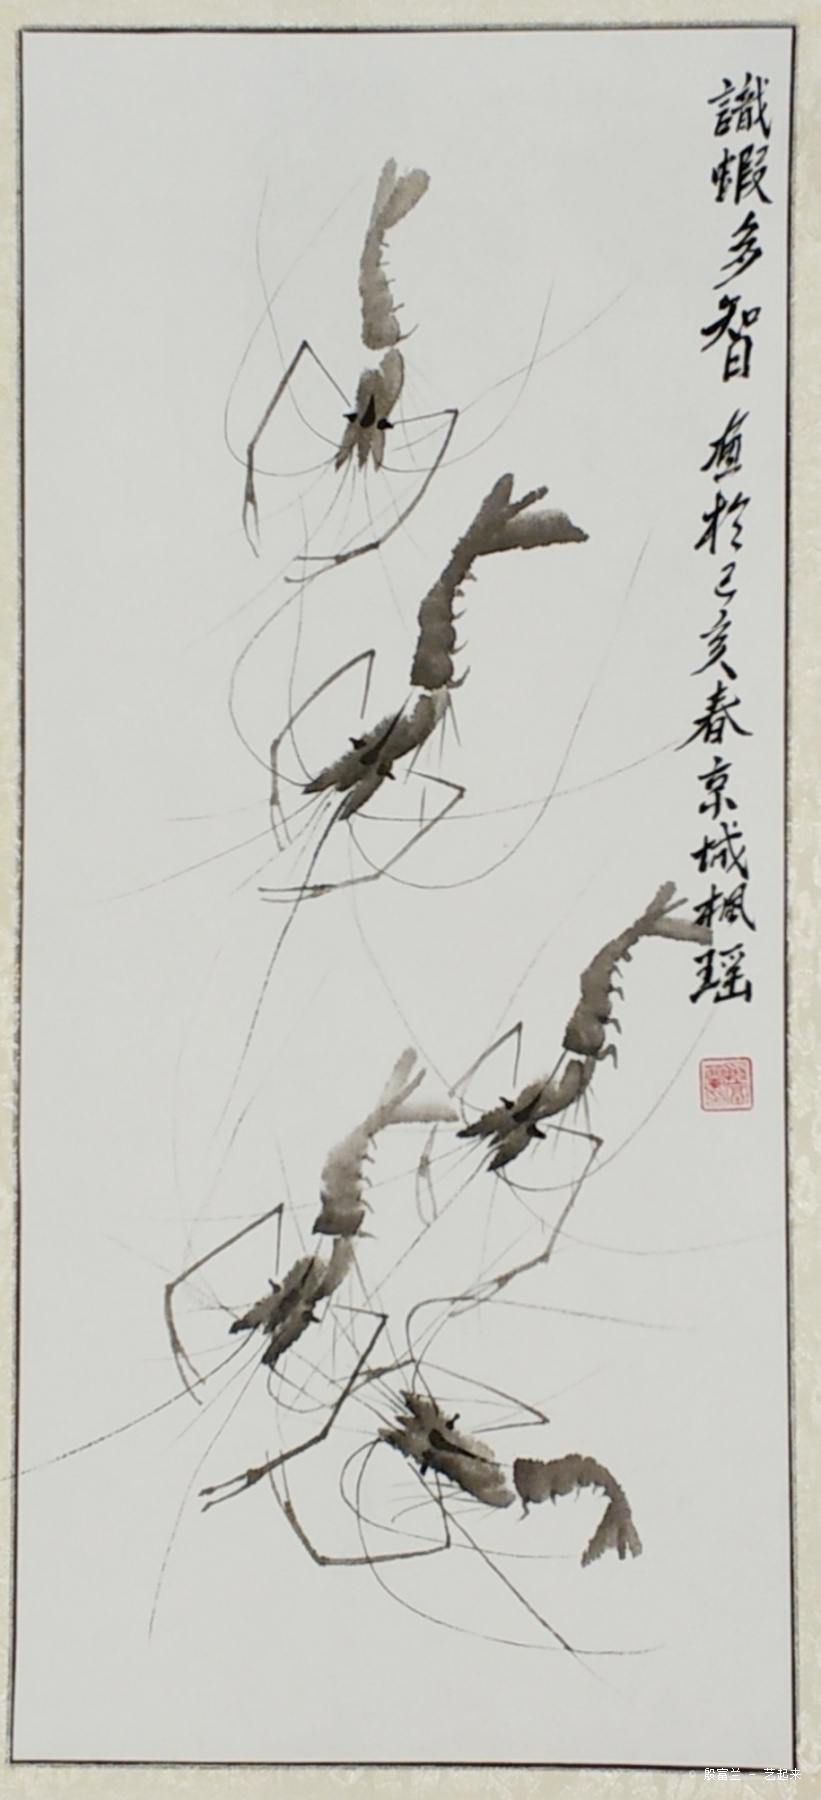 識蝦多智 直於己亥春京城楓瑶
殷富兰 - 艺起来